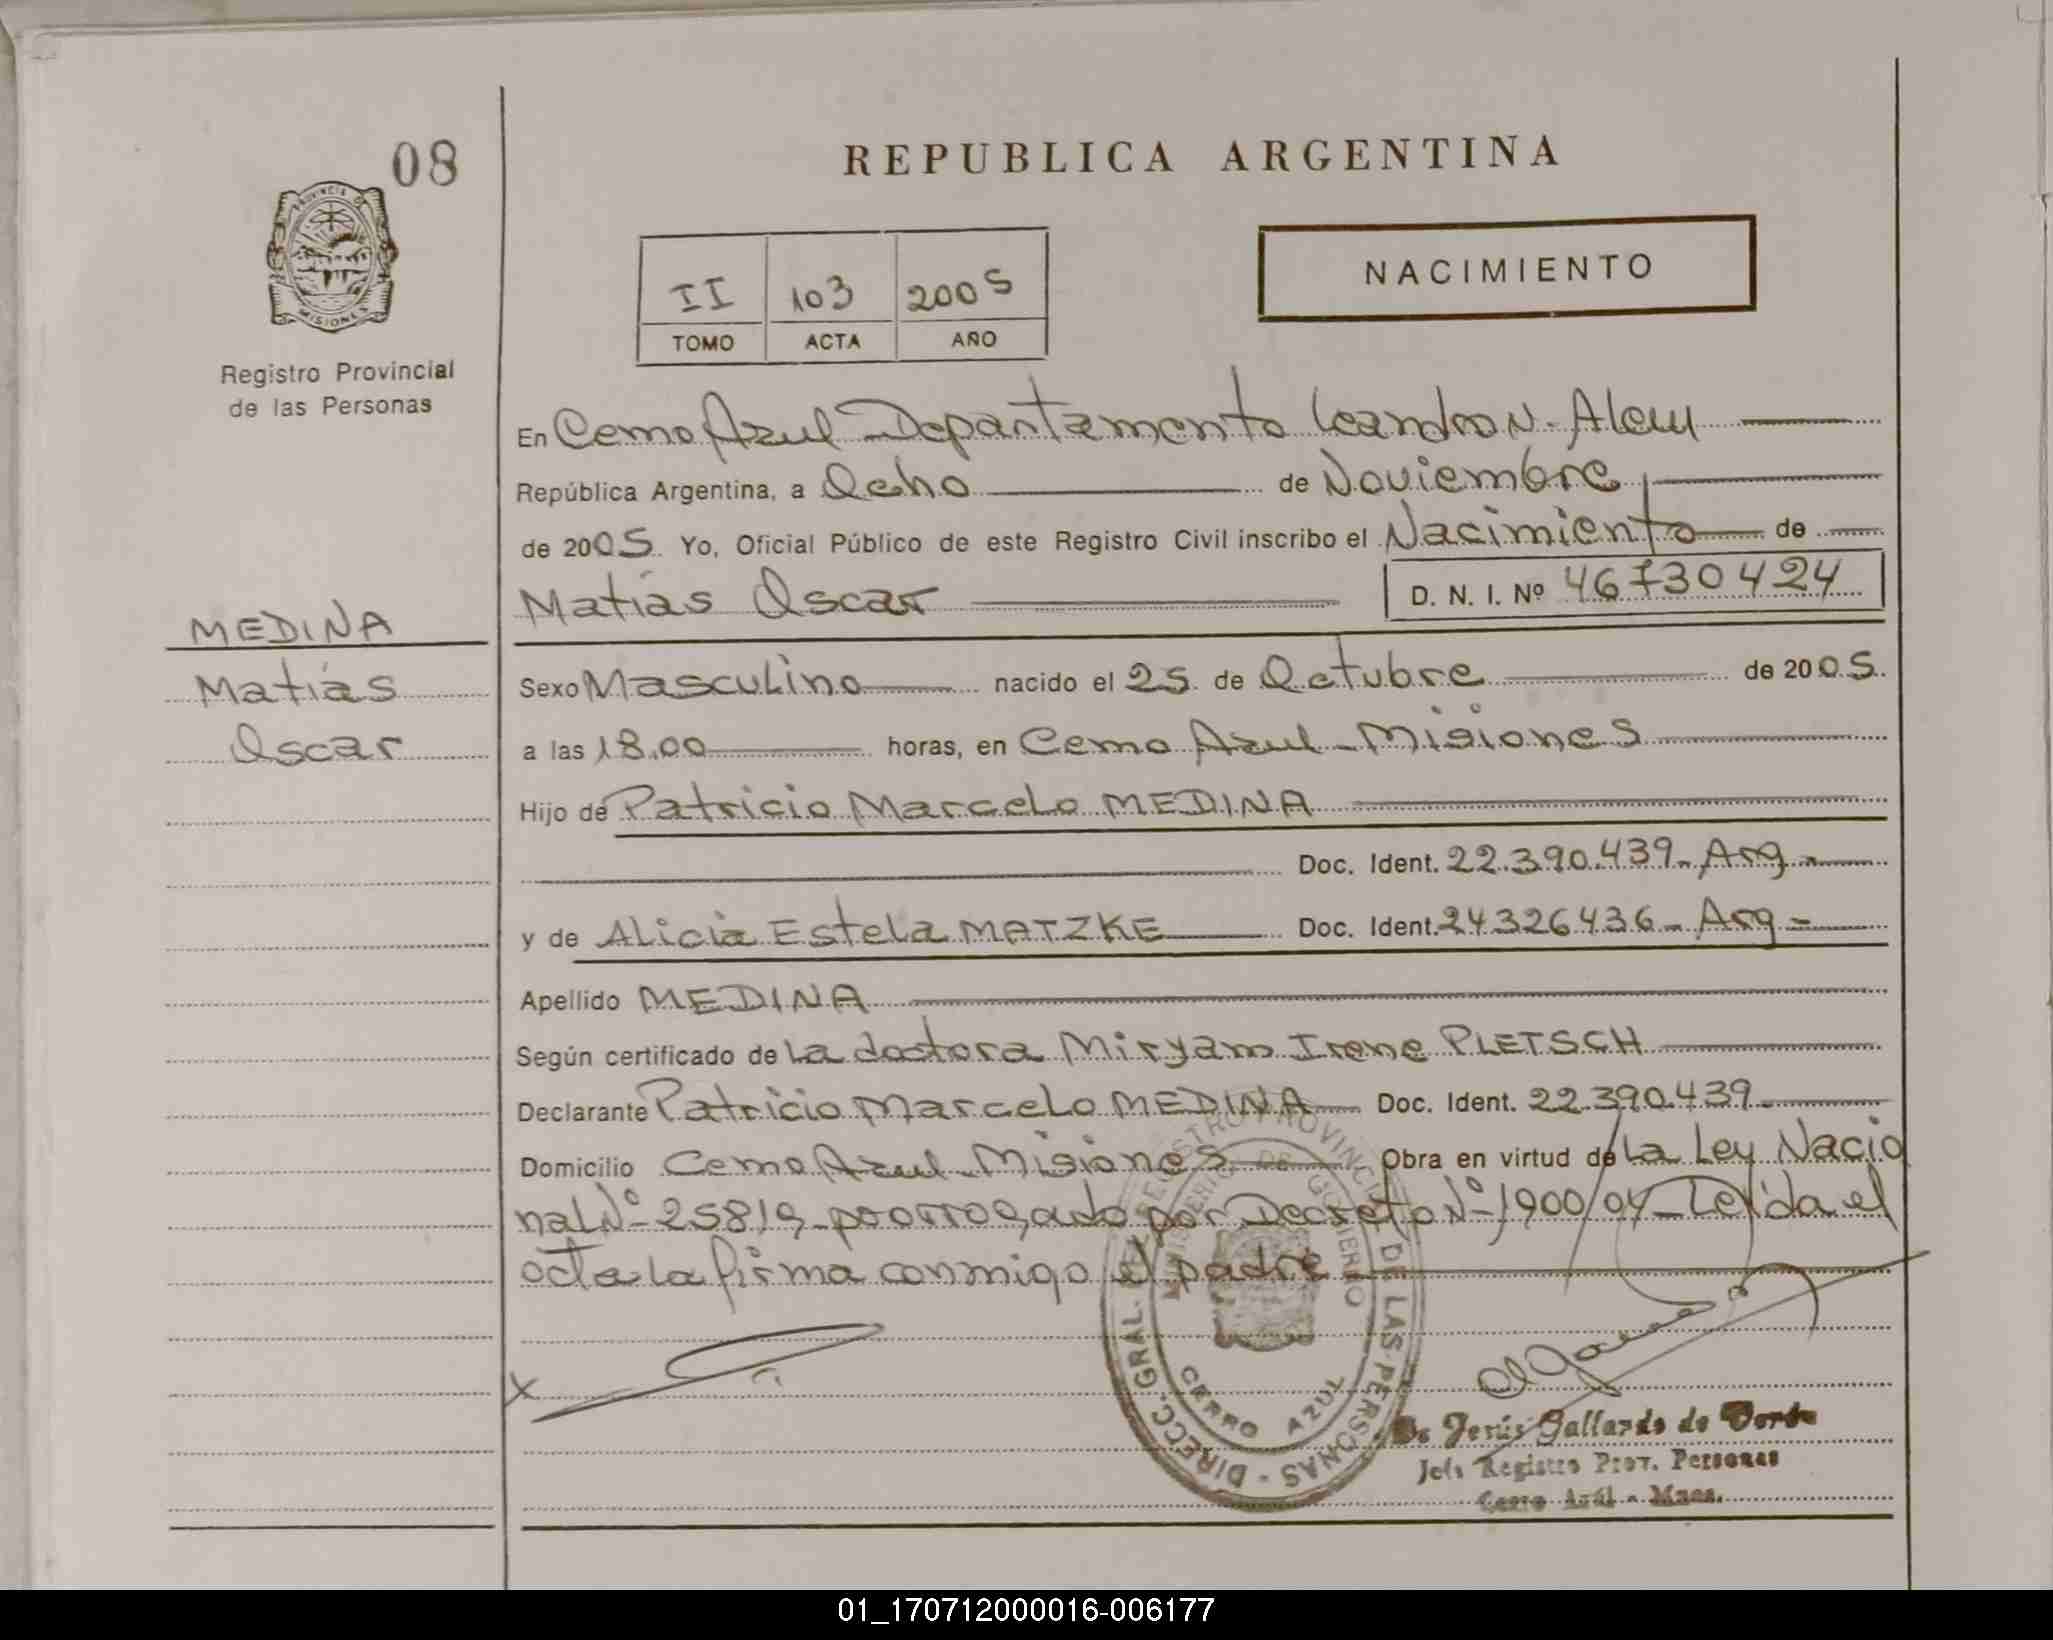 08
PROVINCIA D
MISIONES
Registro Provincial
de las Personas
REPUBLICA ARGENTINA
II 103 2005
TOMO ACTA AÑO
NACIMIENTO
En Cerro Azul Departamento Leandro N. Alem
República Argentina, a Ocho de Noviembre
de 2005. Yo, Oficial Público de este Registro Civil inscribo el Nacimiento de
Matías Oscar D. N. I. Nº 46730424
MEDINA
Matías
Oscar
Sexo Masculino nacido el 25 de Octubre de 2005.
a las 18.00 horas, en Cerro Azul - Misiones
Hijo de Patricio Marcelo MEDINA
Doc. Ident. 22.390.439- Arg-
y de Alicia Estela MATZKE Doc. Ident. 24326436- Arg-
Apellido MEDINA
Según certificado de la doctora Miryam Irene PLETSCH
Declarante Patricio Marcelo MEDINA Doc. Ident. 22.390.439-
Domicilio Cerro Azul - Misiones Obra en virtud de la Ley Nacio
nal Nº 25819 prorrogado por Decreto Nº 1900/04 - Leída el
acta la firma conmigo el padre
X
DIRECC. GRAL. DEL REGISTRO PROVINCIAL DE LAS PERSONAS -
MINISTERIO DE GOBIERNO
CERRO AZUL
Jesús Gallardo de
Jefe Registro Prov. Personas
Cerro Azul - Mnes.
01_170712000016-006177